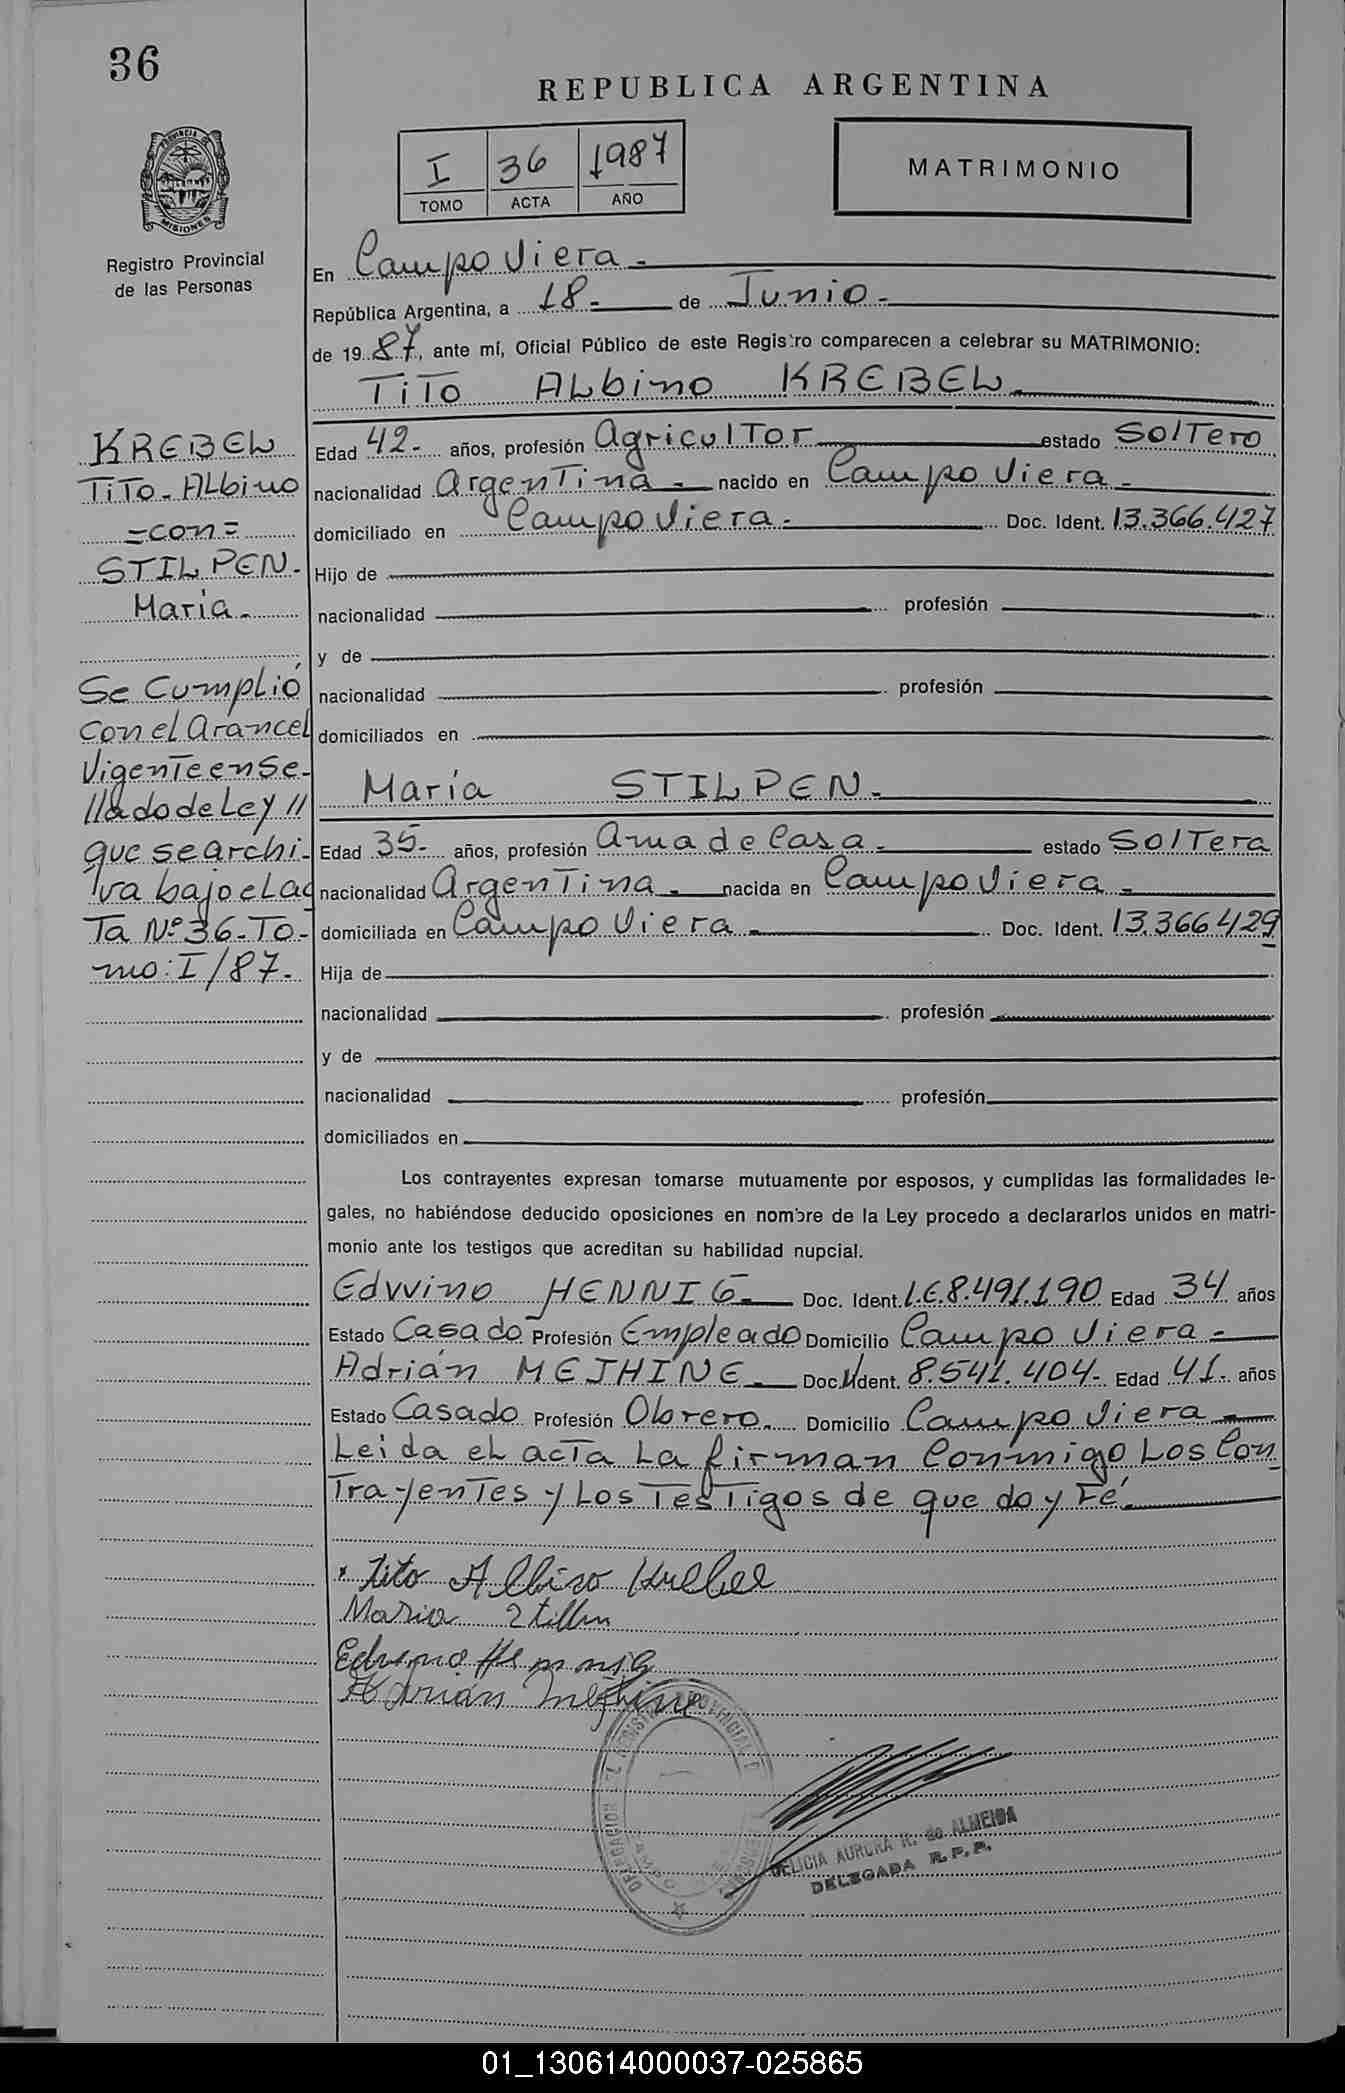 36
REPUBLICA ARGENTINA
PROVINCIA DE
MISIONES
I 36 1987
TOMO ACTA AÑO
MATRIMONIO
Registro Provincial
de las Personas
En Campo Viera.-
República Argentina, a 18.- de Junio.-
de 1987, ante mí, Oficial Público de este Registro comparecen a celebrar su MATRIMONIO:
Tito Albino KREBEL.
KREBEL
Tito-Albino
=con=
STILPEN.-
María.-
Se Cumplió
Con el Arancel
Vigente en Se-
llado de Ley //
que se archi-
va bajo el Ac
Ta Nº 36-To-
mo: I/87.-
Edad 42.- años, profesión Agricultor estado Soltero
nacionalidad Argentina.- nacido en Campo Viera.-
domiciliado en Campo Viera.- Doc. Ident. 13.366.427
Hijo de
nacionalidad profesión
y de
nacionalidad profesión
domiciliados en
María STILPEN.-
Edad 35.- años, profesión Ama de Casa.- estado Soltera
nacionalidad Argentina.- nacida en Campo Viera.-
domiciliada en Campo Viera.- Doc. Ident. 13.366429
Hija de
nacionalidad profesión
y de
nacionalidad profesión
domiciliados en
Los contrayentes expresan tomarse mutuamente por esposos, y cumplidas las formalidades le-
gales, no habiéndose deducido oposiciones en nombre de la Ley procedo a declararlos unidos en matri-
monio ante los testigos que acreditan su habilidad nupcial.
Edwino HENNIG.- Doc. Ident. L.E.8.491.190 Edad 34 años
Estado Casado Profesión Empleado Domicilio Campo Viera.-
Adrián MEJHINE.- Doc. Ident. 8.541.404.- Edad 41.- años
Estado Casado Profesión Obrero. Domicilio Campo Viera.-
Leida el acta la firman Conmigo Los Con
Trayentes y Los Testigos de que doy Fé.
Tito Albino Krebel
Maria
Edwino Hennig
Adrián Mejhine
DELEGACION DEL REGISTRO PROVINCIAL DE
CAMPO
DELICIA AURORA R. de ALMEIDA
DELEGADA R.P.P.
01_130614000037-025865